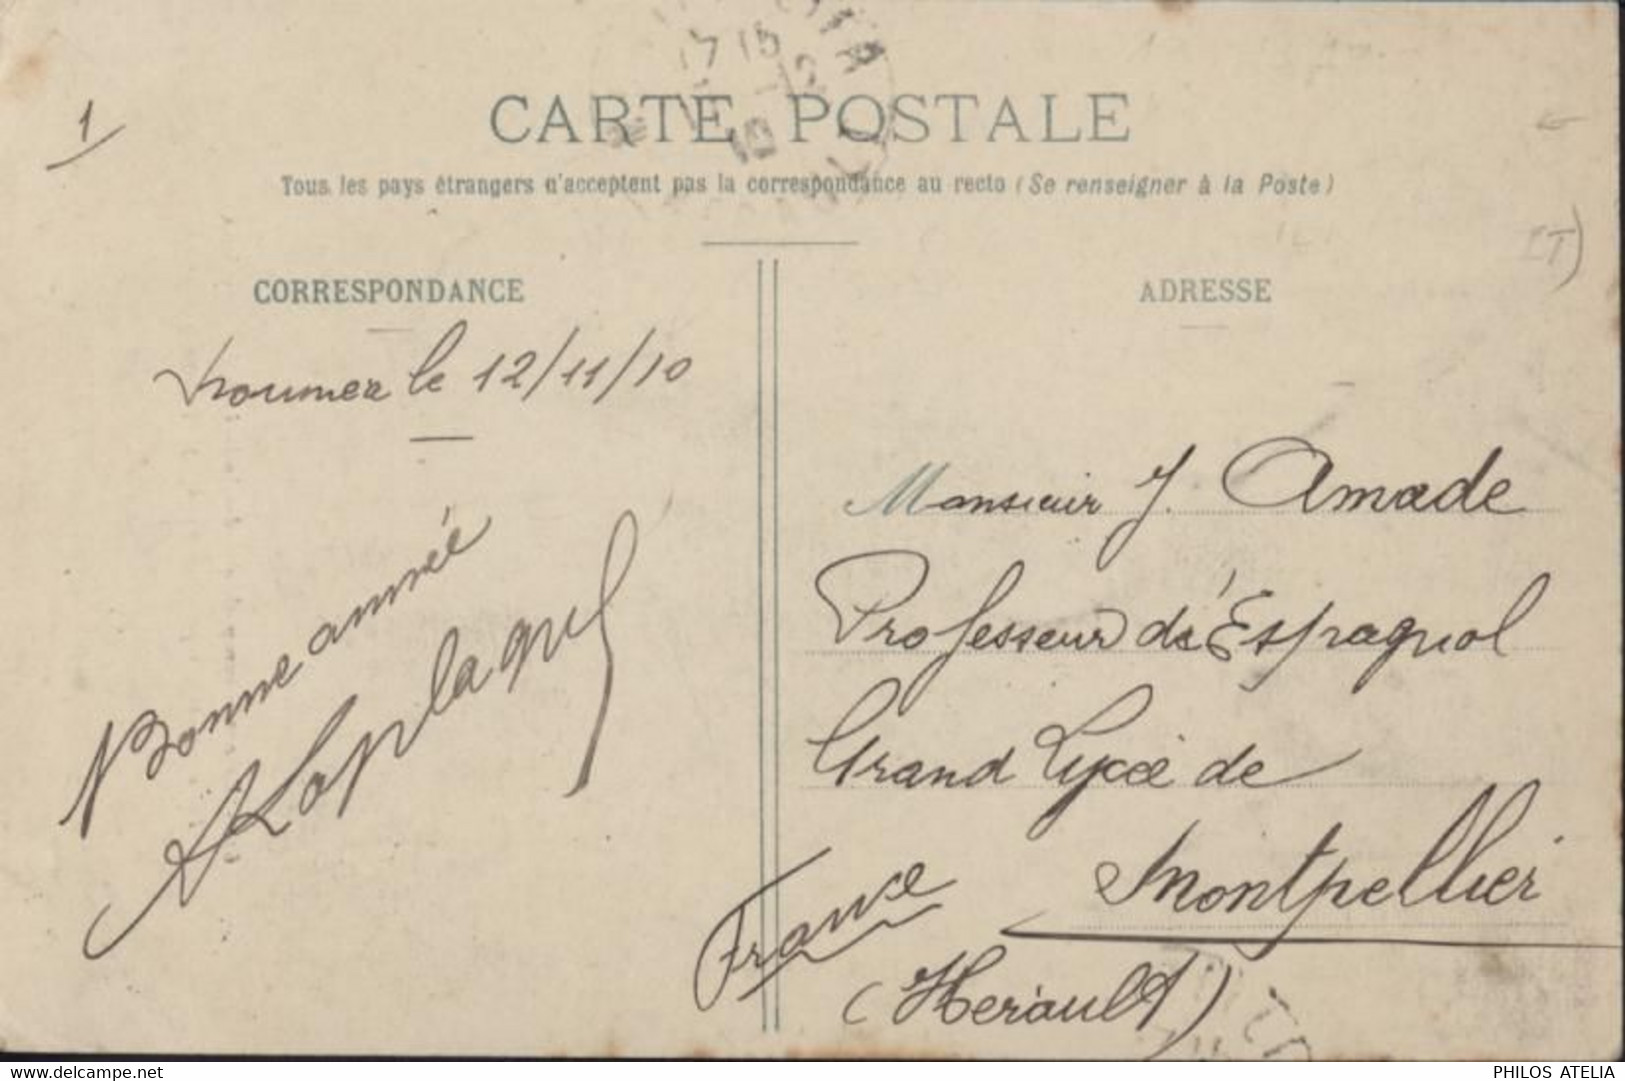 17 15
12
10
CARTE POSTALE
1
Tous les pays étrangers n'acceptent pas la correspondance au recto (Se renseigner à la Poste)
IT)
CORRESPONDANCE
ADRESSE
le 12/11/10
Bonne année
Monsieur J. Amade
Professeur d'Espagnol
Grand Lycée de
Montpellier
France
(Herault)
www.delcampe.net
PHILOS ATELIA